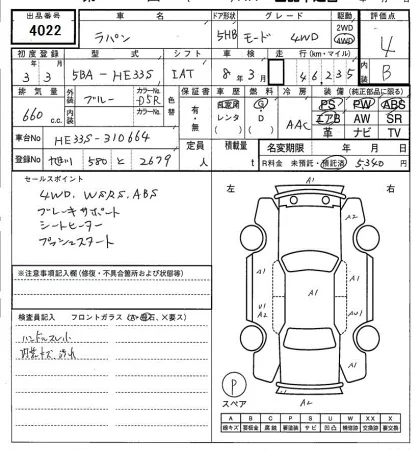 出品番号 車名 ドア形状 グレード 駆動 評価点
4022 ラパン 5HB モード 4WD 2WD 4WD 4
初度登録 型式 シフト 車検 走行(km・マイル) 内装 B
3年3月 5BA-HE33S IAT 8年3月 46,235
排気量 外装 カラーNo. 色替 保証書 車歴 燃料 冷房 装備(純正部品に限る)
660c.c. ブルー D5R 有・無 自家用 レンタ G・D AAC PS PW ABS
内装 カラーNo. エアB AW SR
革 ナビ TV
車台No HE33S-310664 定員 積載量 名変期限 年 月 日
登録No 580 と 2679 人 t R料金 未預託・預託済 5,340円
セールスポイント
4WD, WSRS, ABS
ブレーキサポート
シートヒーター
プッシュスタート
左 右
A1
A2
A1
A1
A1
U1
A2
A1
A2
※注意事項記入欄(修復・不具合箇所および状態等)
検査員記入 フロントガラス
ハンドルスレ小
内装キズ、汚れ
P
スペア
A B C P S U W X XX
線キズ 要板金 腐蝕 要塗装 サビ 凹凸 補修跡 交換跡 要交換